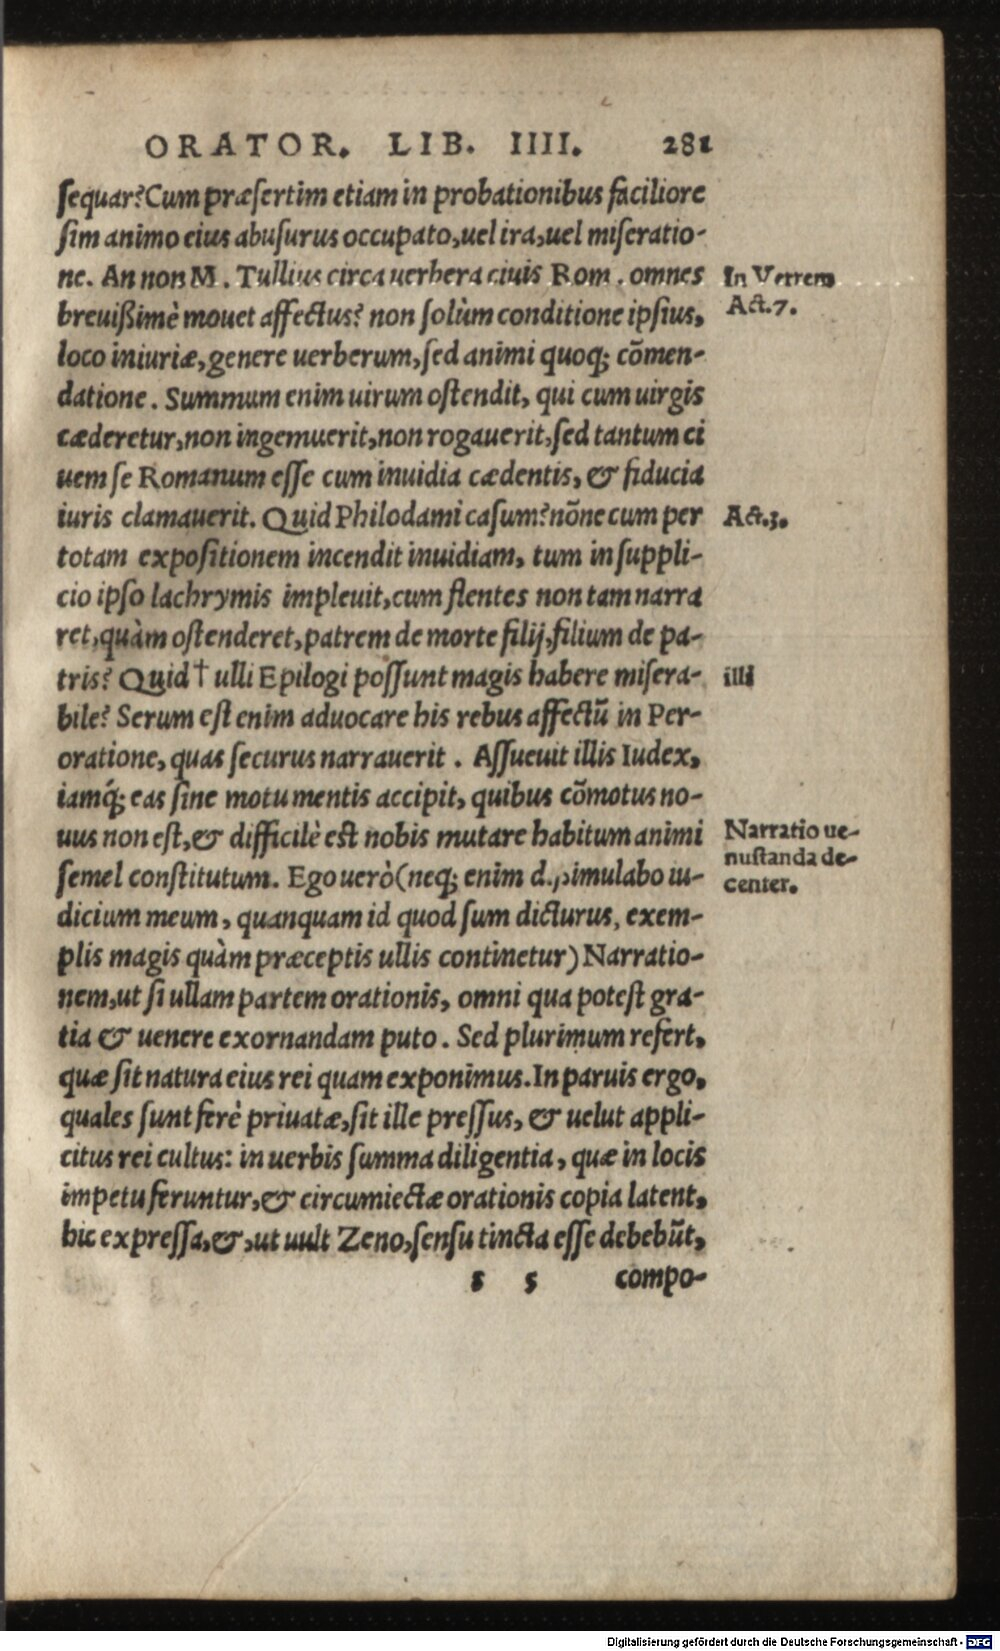 ORATOR. LIB. IIII. 281
sequar? Cum præsertim etiam in probationibus faciliore
sim animo eius abusurus occupato, uel ira, uel miseratio-
ne. An non M. Tullius circa uerbera ciuis Rom. omnes
In Verrem
breuißimè mouet affectus? non solùm conditione ipsius,
Act.7.
loco iniuriæ, genere uerberum, sed animi quoq; cõmen-
datione. Summum enim uirum ostendit, qui cum uirgis
cæderetur, non ingemuerit, non rogauerit, sed tantum ci
uem se Romanum esse cum inuidia cædentis, & fiducia
iuris clamauerit. Quid Philodami casum? nõne cum per
Act.3.
totam expositionem incendit inuidiam, tum in suppli-
cio ipso lachrymis impleuit, cum flentes non tam narra
ret, quàm ostenderet, patrem de morte filij, filium de pa-
tris? Quid † ulli Epilogi possunt magis habere misera-
illi
bile? Serum est enim aduocare his rebus affectũ in Per-
oratione, quas securus narrauerit. Assueuit illis Iudex,
iamq́; eas sine motu mentis accipit, quibus cõmotus no-
uus non est, & difficilè est nobis mutare habitum animi
Narratio ue-
nustanda de-
semel constitutum. Ego uerò (neq; enim dissimulabo iu-
center.
dicium meum, quanquam id quod sum dicturus, exem-
plis magis quàm præceptis ullis continetur) Narratio-
nem, ut si ullam partem orationis, omni qua potest gra-
tia & uenere exornandam puto. Sed plurimum refert,
quæ sit natura eius rei quam exponimus. In paruis ergo,
quales sunt ferè priuatæ, sit ille pressus, & uelut appli-
citus rei cultus: in uerbis summa diligentia, quæ in locis
impetu feruntur, & circumiectæ orationis copia latent,
hic expressa, &, ut uult Zeno, sensu tincta esse debebũt,
s 5 compo-
Digitalisierung gefördert durch die Deutsche Forschungsgemeinschaft - DFG